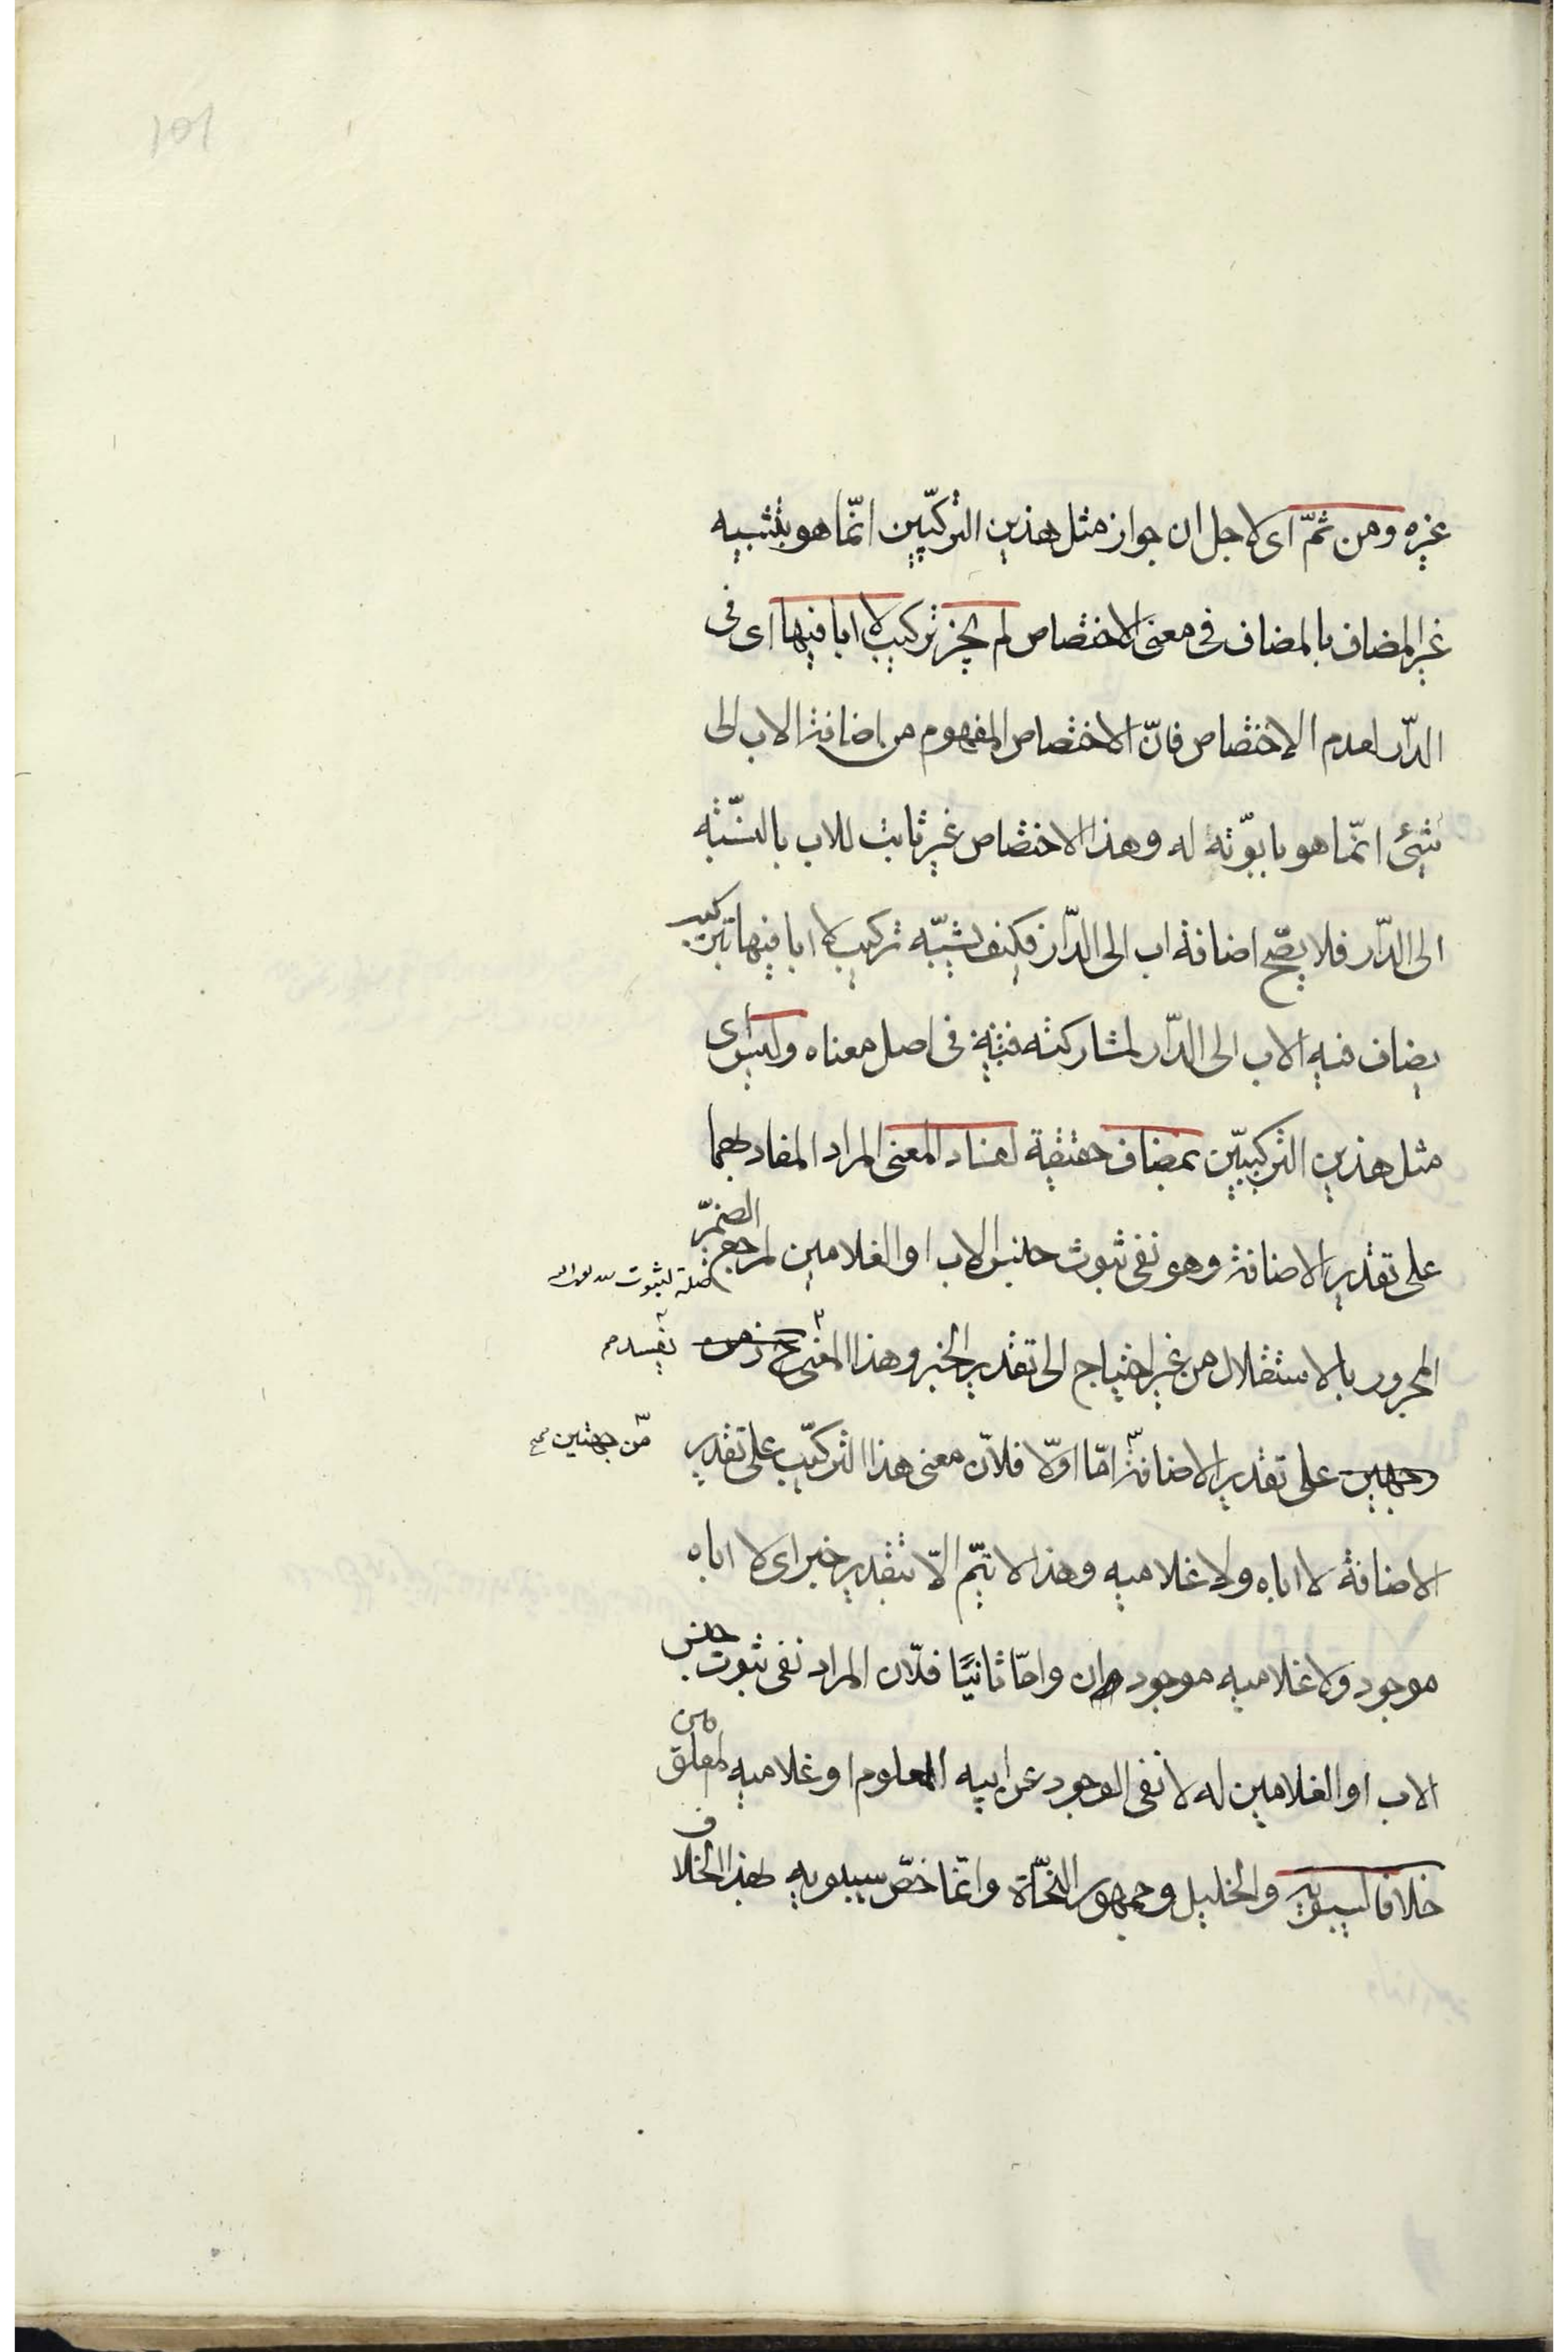 ١٥١
غيره ومن ثمّ اى لاجل ان جواز مثل هذين التركيبين انّما هو بتشبيه
غير المضاف بالمضاف فى معنى الاختصاص لم يجز تركيب لا ابا فيها اى فى
الدّار لعدم الاختصاص فانّ الاختصاص المفهوم من اضافة الاب الى
شيئ انّما هو بابوّته له وهذا الاختصاص غير ثابت للاب بالنسّبة
الى الدّار فلا يصّح اضافة اب الى الدّار فكيف يشبّه تركيب لا ابا فيها بتركيب
يضاف فيه الاب الى الدّار لمشاركته فيه فى اصل معناه وليس اى
مثل هذين التركيبيّن بمضاف حقيقة لفساد المعنى المراد المفاد بهما
على تقدير الاضافة وهو نفى ثبوت جنس الاب او الغلامين لمرجع الضميّر
صلة لثبوت
المجرور بالاستقلال من غير احتياج الى تقدير الخبر وهذا المعنى
يفسد صح
وجهين على تقدير الاضافة امّا اوّلا فلانّ معنى هذا التركيّب على تقدير
من جهتين صح
الاضافة لا اباه ولا غلاميه وهذا لا يتمّ الّا بتقدير خبر اى لا اباه
موجود ولا غلاميه موجودان وامّا ثانيًا فلّان المراد نفى ثبوت جنس
الاب او الغلامين له لا نفى الوجود عن ابيه المعلوم او غلاميه المعلومين
خلافا لسيبويه والخليل وجمهور النحّاة وانّما خصّ سيبويه بهذا الخلاف